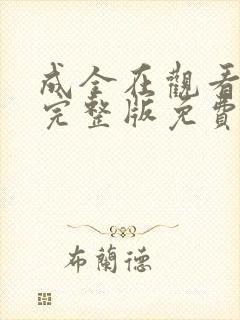 成全在觀看
完整版免費
布蘭德